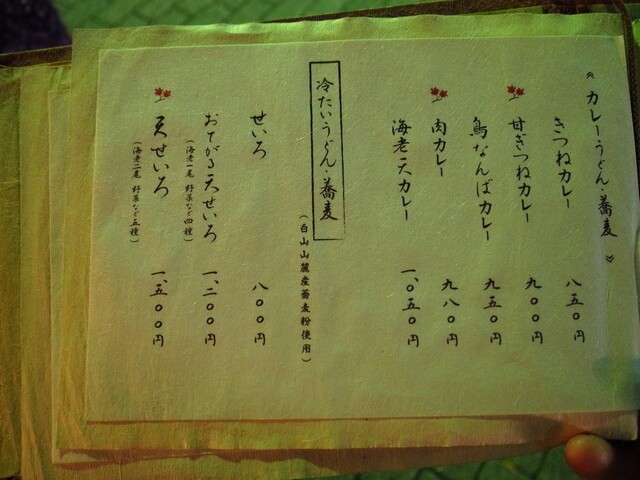 《カレーうどん・蕎麦》
きつねカレー 八五〇円
甘ぎつねカレー 九〇〇円
鳥なんばカレー 九五〇円
肉カレー 九八〇円
海老天カレー 一、〇五〇円
冷たいうどん・蕎麦
（白山山麓産蕎麦粉使用）
せいろ 八〇〇円
おてがる天せいろ 一、二〇〇円
（海老一尾 野菜など四種）
天せいろ 一、五〇〇円
（海老二尾 野菜など五種）